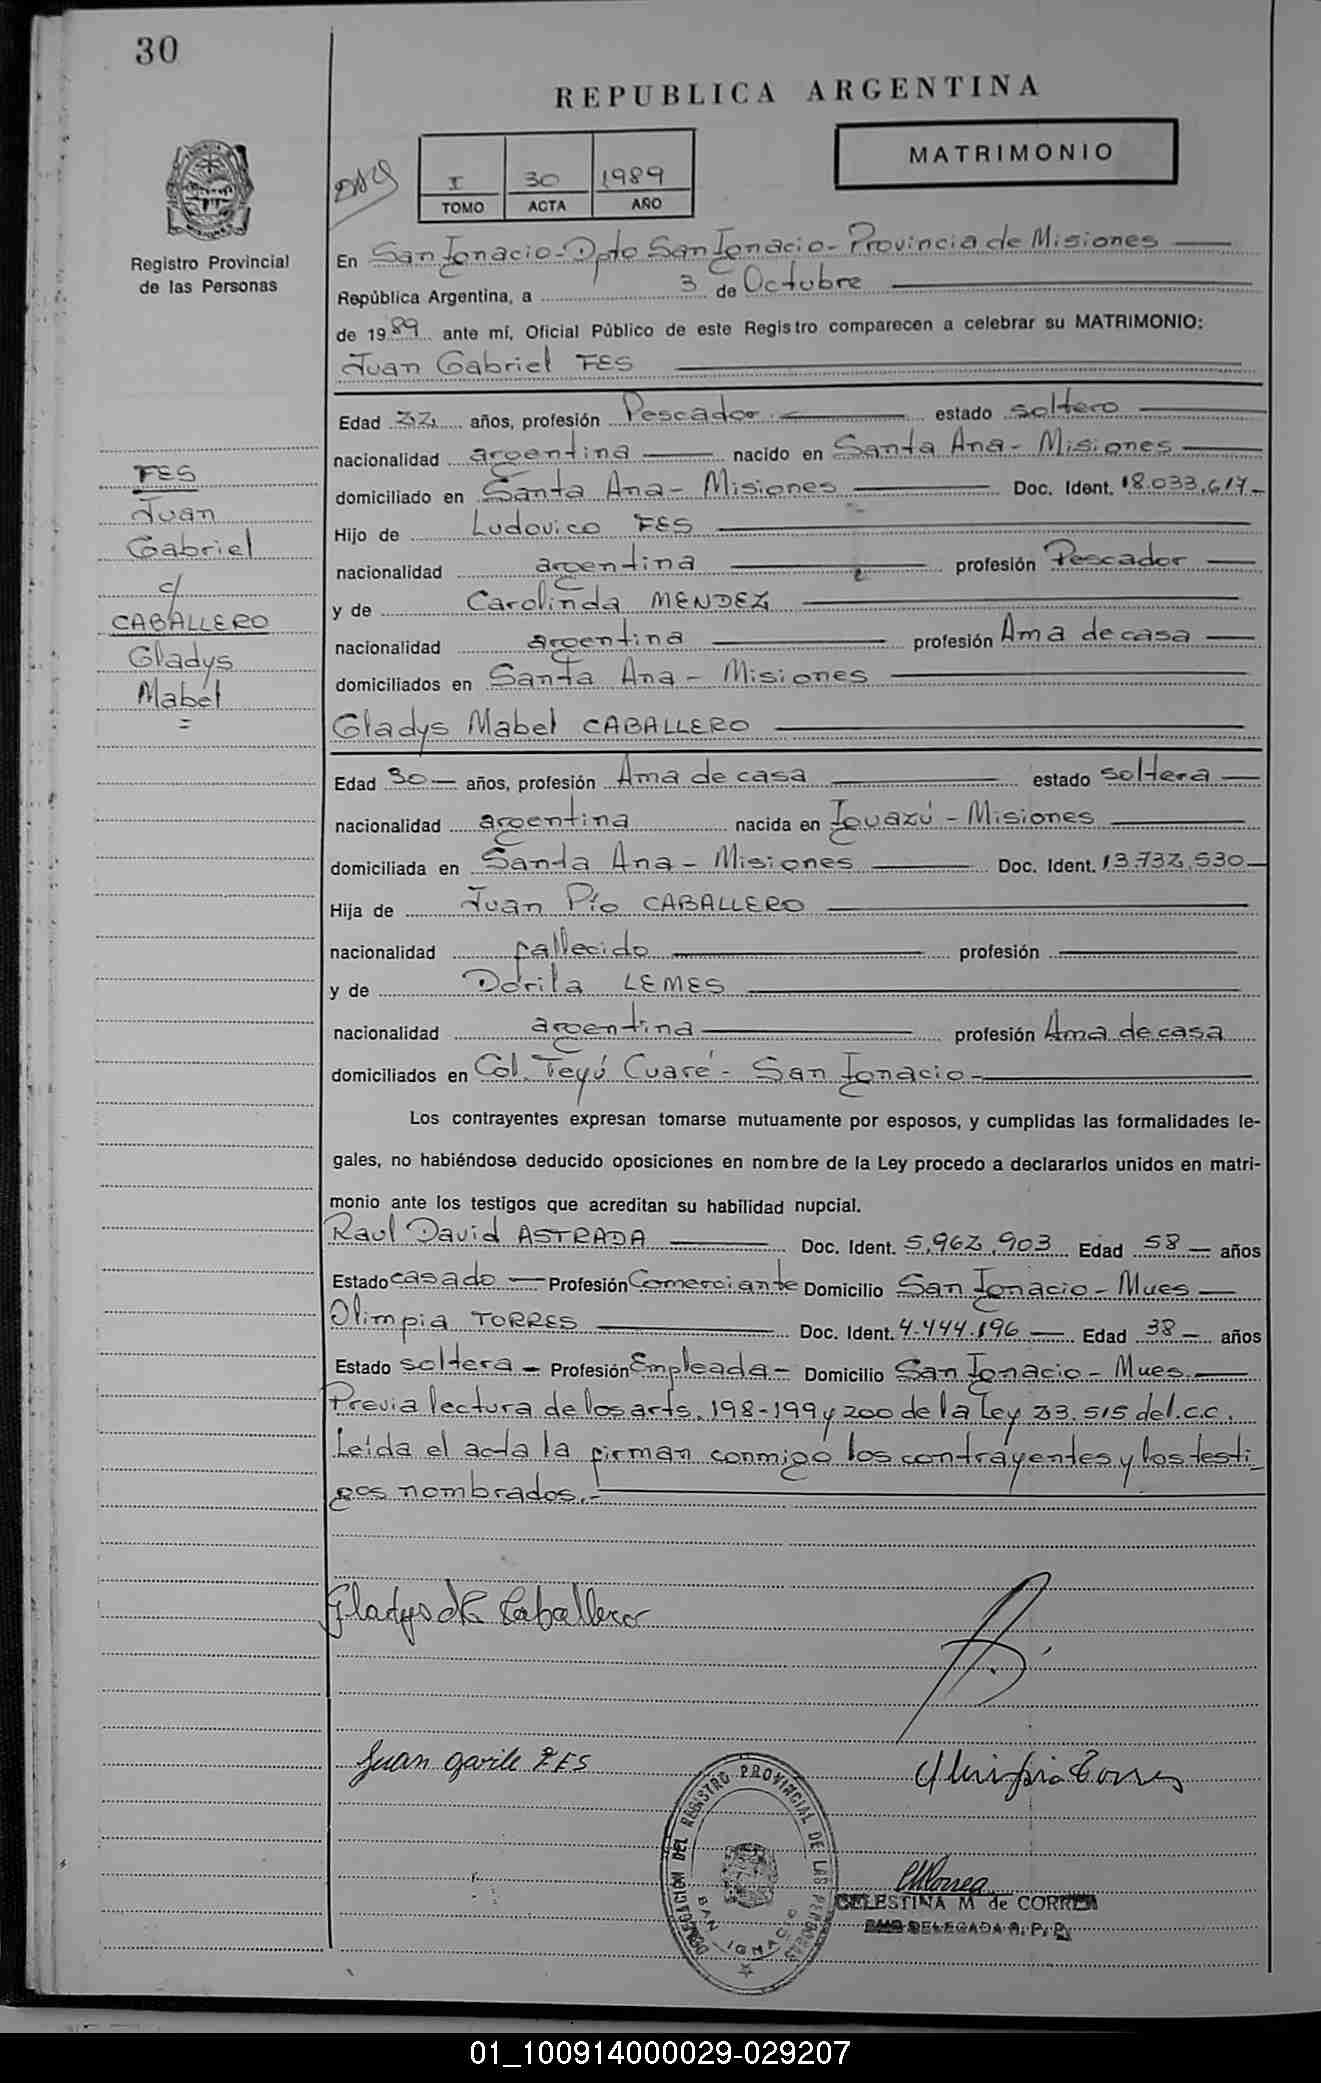 30
REPUBLICA ARGENTINA
MATRIMONIO
I 30 1989
TOMO ACTA AÑO
Registro Provincial
de las Personas
En San Ignacio - Dpto San Ignacio - Provincia de Misiones
República Argentina, a 3 de Octubre
de 1989 ante mí, Oficial Público de este Registro comparecen a celebrar su MATRIMONIO:
Juan Gabriel FES
Edad 32 años, profesión Pescador estado soltero
nacionalidad argentina nacido en Santa Ana - Misiones
domiciliado en Santa Ana - Misiones Doc. Ident. 18.033.617
Hijo de Ludovico FES
nacionalidad argentina profesión Pescador
y de Carolinda MENDEZ
nacionalidad argentina profesión Ama de casa
domiciliados en Santa Ana - Misiones
FES
Juan
Gabriel
c/
CABALLERO
Gladys
Mabel
=
Gladys Mabel CABALLERO
Edad 30 años, profesión Ama de casa estado soltera
nacionalidad argentina nacida en Iguazú - Misiones
domiciliada en Santa Ana - Misiones Doc. Ident. 13.732.530
Hija de Juan Pío CABALLERO
nacionalidad fallecido profesión
y de Dorila LEMES
nacionalidad argentina profesión Ama de casa
domiciliados en Col. Teyú Cuaré - San Ignacio -
Los contrayentes expresan tomarse mutuamente por esposos, y cumplidas las formalidades le-
gales, no habiéndose deducido oposiciones en nombre de la Ley procedo a declararlos unidos en matri-
monio ante los testigos que acreditan su habilidad nupcial.
Raul David ASTRADA Doc. Ident. 5.962.903 Edad 58 años
Estado casado Profesión Comerciante Domicilio San Ignacio - Mnes
Olimpia TORRES Doc. Ident. 4.444.196 Edad 38 años
Estado soltera Profesión Empleada Domicilio San Ignacio - Mnes
Previa lectura de los arts. 198-199 y 200 de la Ley 23.515 del c.c.
Leída el acta la firman conmigo los contrayentes y los testi-
gos nombrados.-
Gladys M Caballero
Juan gavile FES
Olimpia Torres
DELEGACIÓN DEL REGISTRO PROVINCIAL DE LAS PERSONAS
SAN IGNACIO
CELESTINA M de CORREA
DELEGADA R. P. P.
01_100914000029-029207